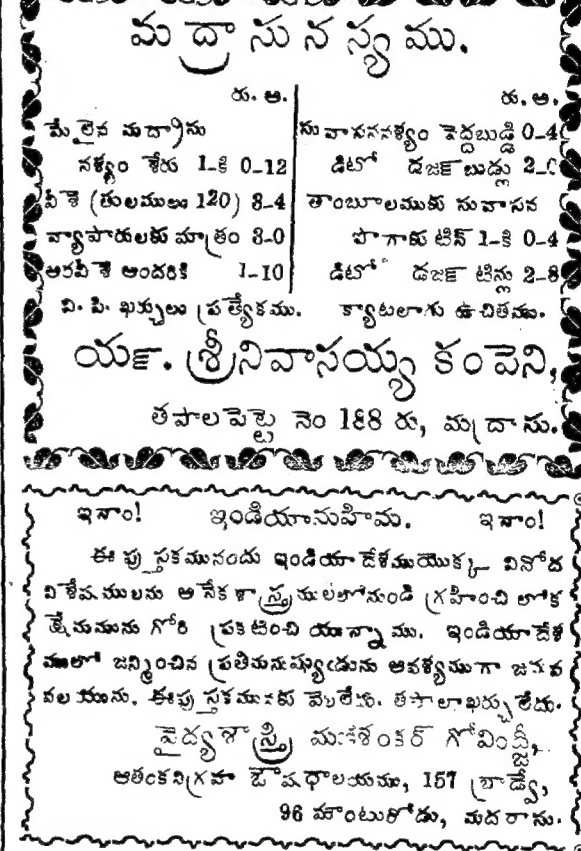 మద్రాసు నస్యము.
రు. ఆ.
మేలైన మద్రాసు
నశ్యం శేరు 1-కి 0-12
వీశె (తులములు 120) 3-4
వ్యాపారులకు మాత్రం 3-0
అరవీశె అందరికి 1-10
రు. ఆ.
సువాసననశ్యం పెద్దబుడ్డి 0-4
డిటో డజక్ బుడ్లు 2-
తాంబూలముకు సువాసన
పొగాకు టిన్ 1-కి 0-4
డిటో డజక్ టిన్లు 2-8
వి. పి. ఖర్చులు ప్రత్యేకము. క్యాటలాగు ఉచితము.
యక్. శ్రీనివాసయ్య కంపెని,
తపాలపెట్టె నెం 188 రు, మద్రాసు.
ఇనాం! ఇండియామహిమ. ఇనాం!
ఈ పుస్తకమునందు ఇండియా దేశముయొక్క వినోద
విశేషములను అనేక శాస్త్రములలోనుండి గ్రహించి లోక
క్షేమమును గోరి ప్రకటించి యున్నాము. ఇండియాదేశ
ములో జన్మించిన ప్రతిమనుష్యుఁడును ఆవశ్యముగా జదువ
వలయును. ఈపుస్తకమునకు వెలలేదు. తపాలాఖర్చు లేదు.
వైద్యశాస్త్రి మణిశంకర్ గోవింద్జీ,
ఆతంకనిగ్రహ ఔషధాలయము, 157 బ్రాడ్వే,
96 మౌంటురోడు, మదరాసు.